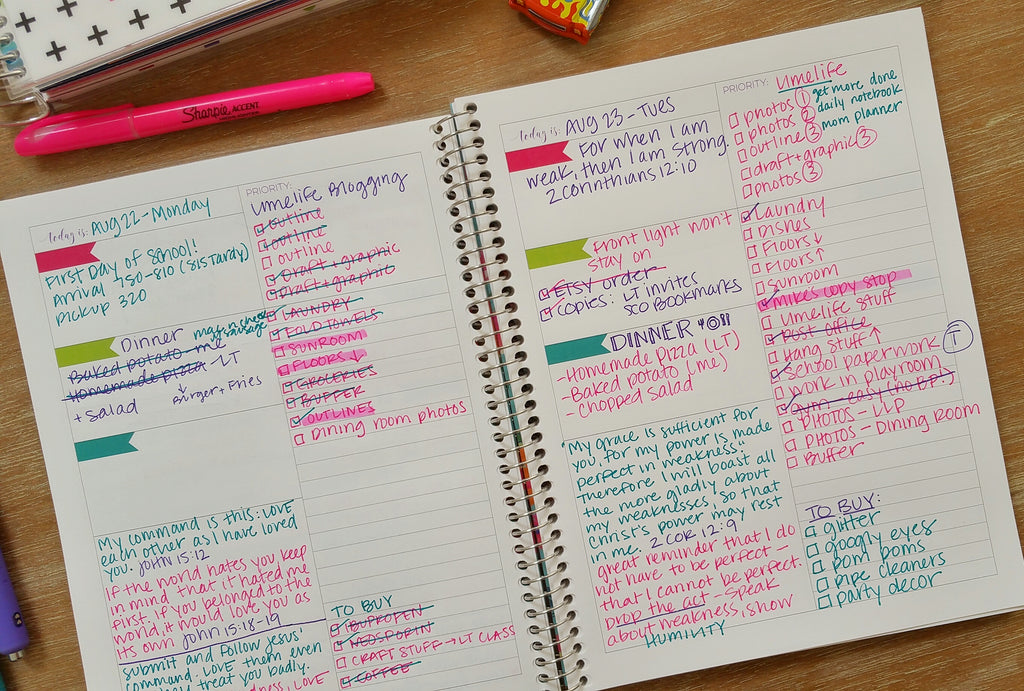 Sharpie ACCENT
Today is: Aug 22 - Monday
First Day of School!
Arrival 750-810 (815 Tardy)
Pickup 320
Dinner mac n cheese
w/ sausage
Baked potato - me
Homemade pizza - LT
↓
Burger + Fries
+ Salad
My command is this: LOVE
each other as I have loved
you. John 15:12
If the world hates you keep
in mind that it hated me
first. If you belonged to the
world, it would love you as
its own John 15:18-19
Submit and follow Jesus'
command. LOVE them even
treat you badly.
LOVE
PRIORITY:
Umelife Blogging
outline
outline
outline
Draft + graphic
Draft + graphic
LAUNDRY
FOLD TOWELS
SUNROOM
FLOORS ↓
GROCERIES
BUFFER
OUTLINES
Dining room photos
TO BUY
IBUPROFEN
NEOSPORIN
CRAFT STUFF → LT CLASS
COFFEE
Today is: Aug 23 - Tues
For when I am
weak, then I am strong.
2 Corinthians 12:10
Front light won't
stay on
ETSY order
Copies: LT invites
SCO Bookmarks
DINNER
- Homemade Pizza (LT)
- Baked potato (me)
- chopped salad
"My grace is sufficient for
you, for my power is made
perfect in weakness."
Therefore I will boast all
the more gladly about
my weaknesses, so that
Christ's power may rest
in me. 2 COR 12:9
great reminder that I do
not have to be perfect -
that I cannot be perfect.
Drop the act - Speak
about weakness, show
HUMILITY
PRIORITY: Umelife
photos 1 get more done
photos 2 daily notebook
outline 3 mom planner
draft + graphic 3
photos 3
Laundry
Dishes
Floors ↓
Floors ↑
Sunroom
Mike's copy stop
Umelife stuff
Post office
Hang stuff ↑
School paperwork T
Work in playroom
Gym - easy (no BP!)
PHOTOS - LLP
PHOTOS - Dining Room
Buffer
TO BUY:
glitter
googly eyes
pom poms
pipe cleaners
party decor